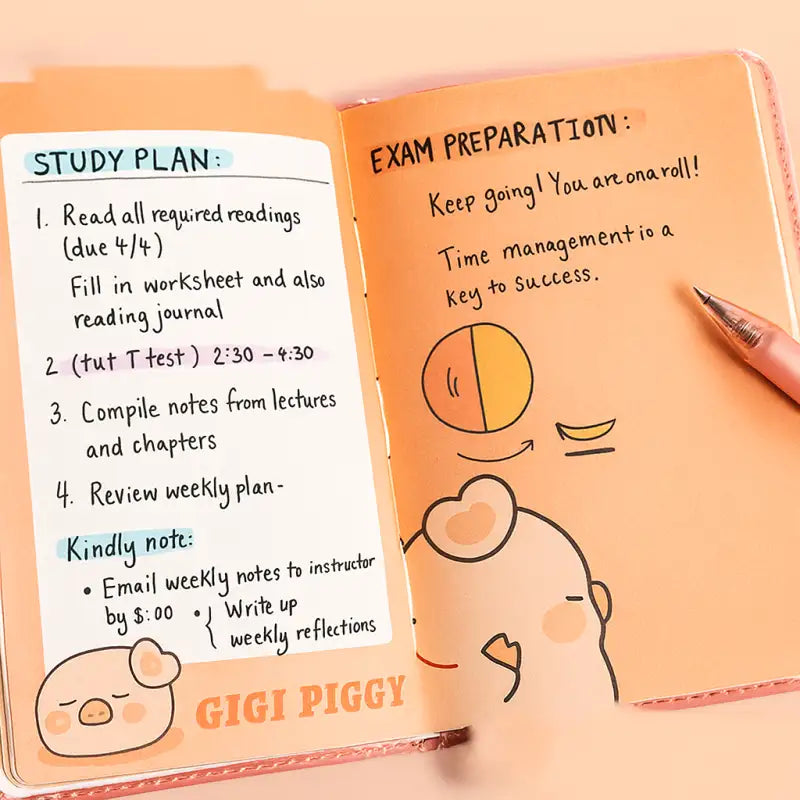 STUDY PLAN:
1. Read all required readings
(due 4/4)
Fill in worksheet and also
reading journal
2 (tut T test) 2:30 - 4:30
3. Compile notes from lectures
and chapters
4. Review weekly plan-
Kindly note:
• Email weekly notes to instructor
by $:00 • { Write up
weekly reflections
GIGI PIGGY
EXAM PREPARATION:
Keep going! You are on a roll!
Time management io a
key to success.